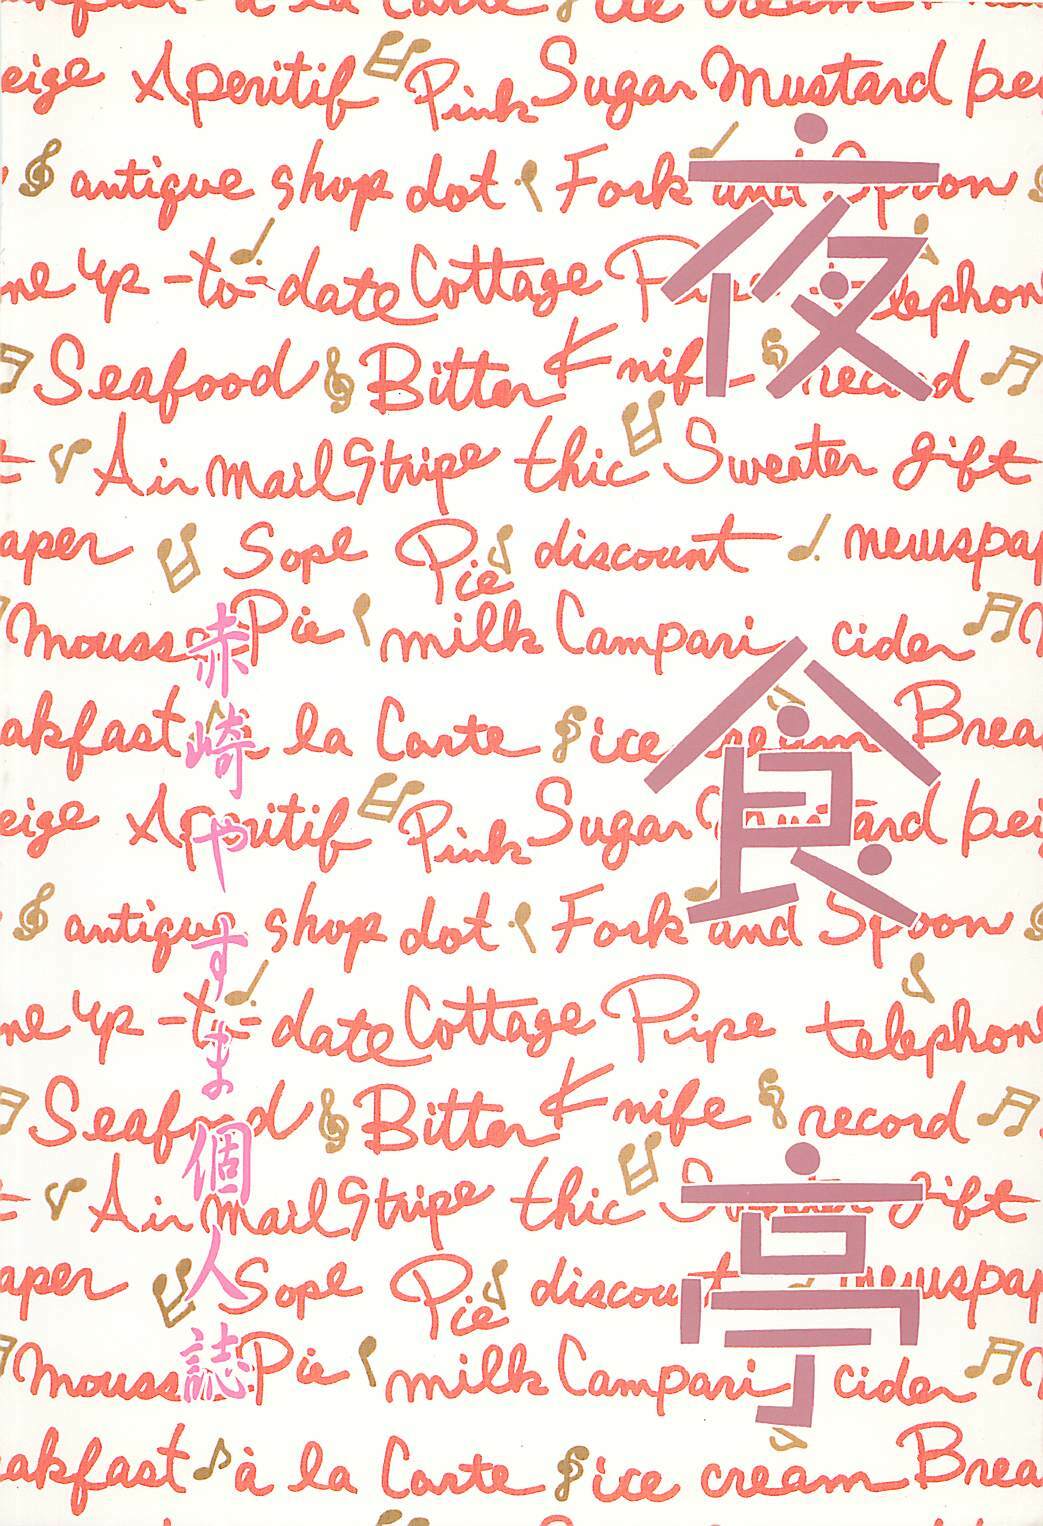 夜食亭
赤崎やすま個人誌
à la Carte ice cream
eige Aperitif Pink Sugar Mustard bei
antique shop dot Fork and Spoon
me up-to-date Cottage Pipe telephon
Seafood Bitter Knife record
Air mail Stripe thic Sweater gift
aper Sope Pie discount newspap
Mousse Pie milk Campari cider
akfast à la Carte ice cream Brea
eige Aperitif Pink Sugar Mustard bei
antique shop dot Fork and Spoon
me up-to-date Cottage Pipe telephon
Seafood Bitter Knife record
Air mail Stripe thic Sweater gift
aper Sope Pie discount newspap
Mousse Pie milk Campari cider
akfast à la Carte ice cream Brea